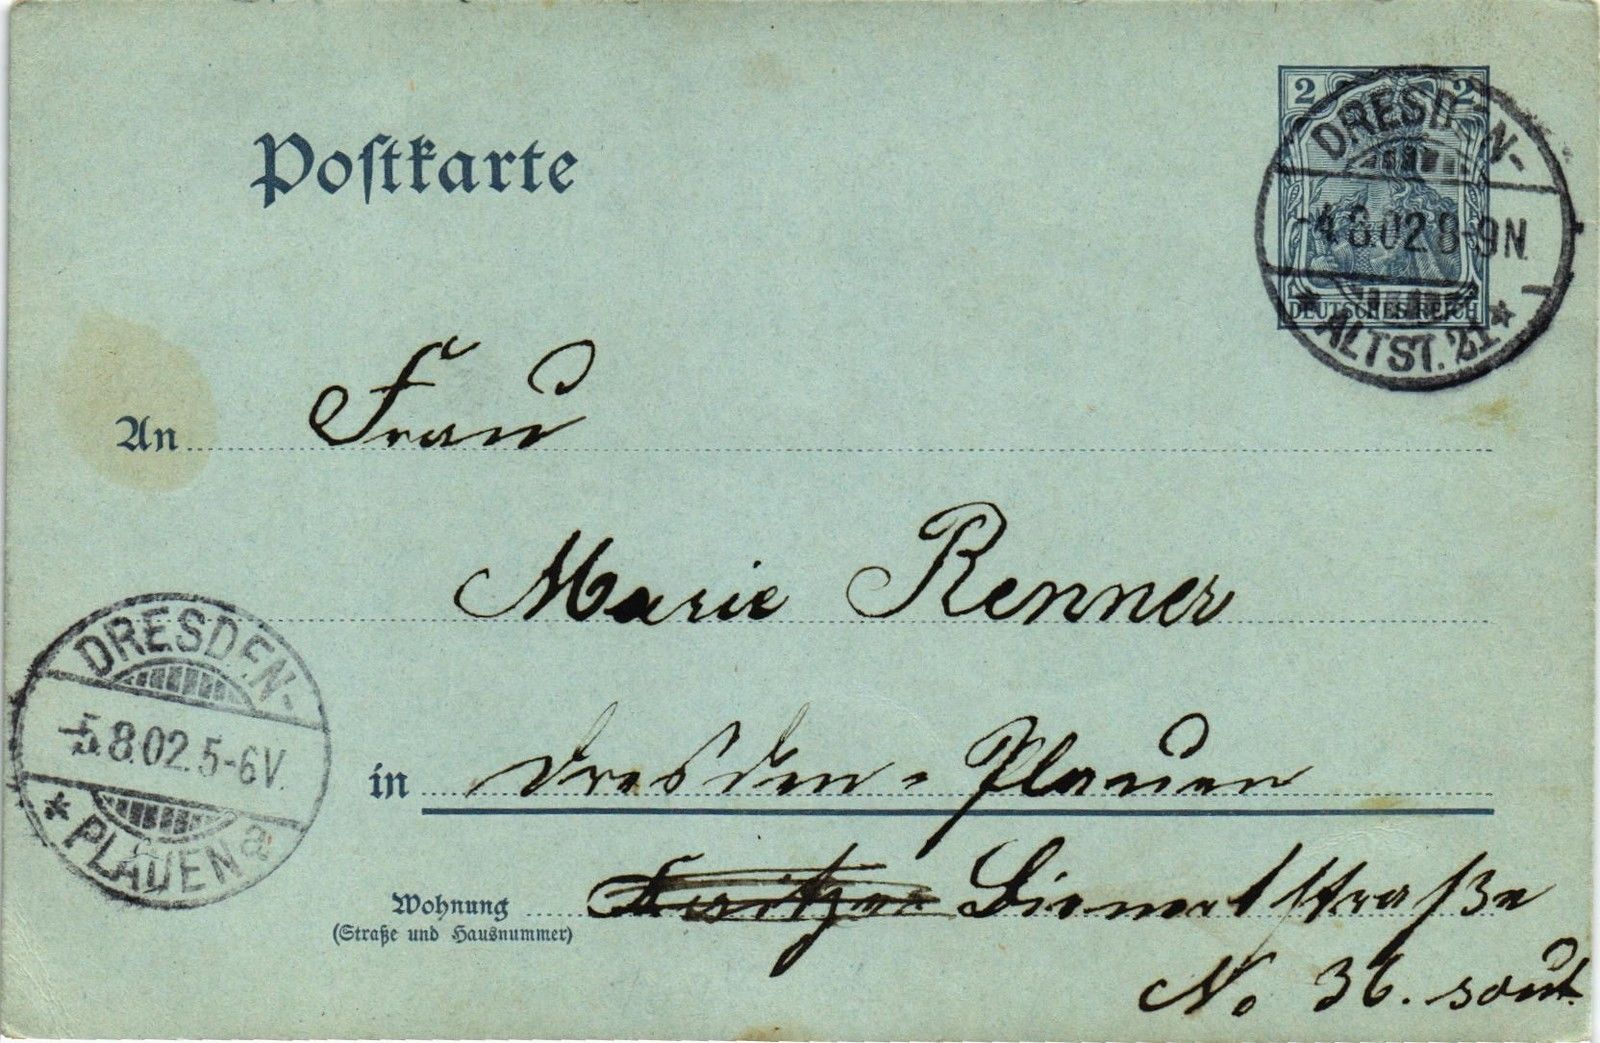 Postkarte
2 2
DEUTSCHES REICH
DRESDEN-
-4.8.02.8-9N.
* ALTST. 21 *
An Frau
Marie Renner
in Dresden-Plauen
Wohnung Bienertstraße
(Straße und Hausnummer)
No 36. sout.
DRESDEN-
-5.8.02.5-6V.
* PLAUEN a